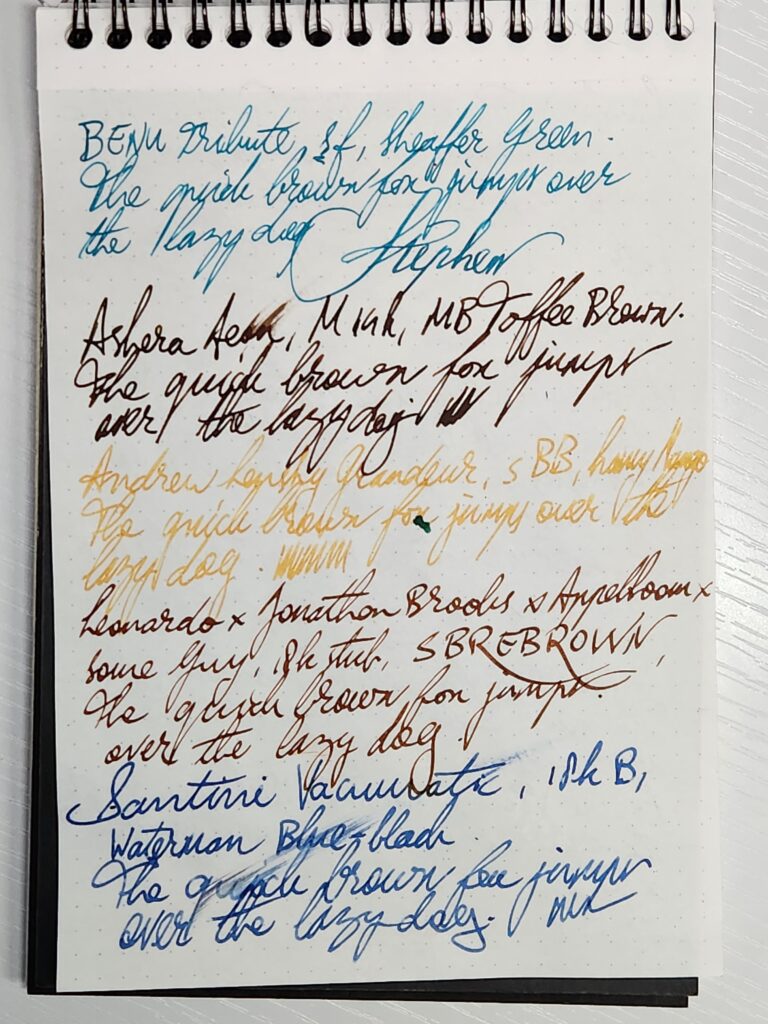 BENU Tribute, sf, Sheaffer Green.
The quick brown fox jumps over
the lazy dog Stephen
Ashera Aeon, M 14k, MB Toffee Brown.
The quick brown fox jumps
over the lazy dog.
Andrew Lensky Grandeur, s BB, Mango
The quick brown fox jumps over the
lazy dog.
Leonardo x Jonathon Brooks x Appelboom x
Some Guy, 18k stub, SBREBROWN,
The quick brown fox jumps.
over the lazy dog.
Santini Vacumatic, 18k B,
Waterman Blue-black
The quick brown fox jumps
over the lazy dog.